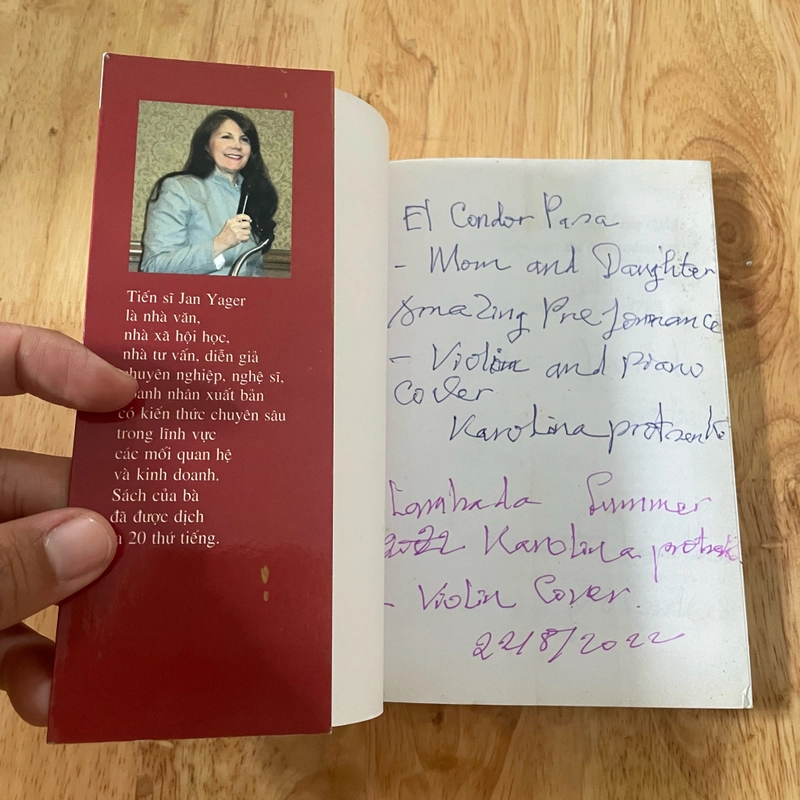 Tiến sĩ Jan Yager
là nhà văn,
nhà xã hội học,
nhà tư vấn, diễn giả
chuyên nghiệp, nghệ sĩ,
doanh nhân xuất bản
có kiến thức chuyên sâu
trong lĩnh vực
các mối quan hệ
và kinh doanh.
Sách của bà
đã được dịch
ra 20 thứ tiếng.
El Condor Pasa
- Mom and Daughter
Amazing Preformance
- Violin and piano
Cover
Karolina protsenko
Lambada Summer
2022 Karolina protsenko
- Violin Cover.
22/8/2022